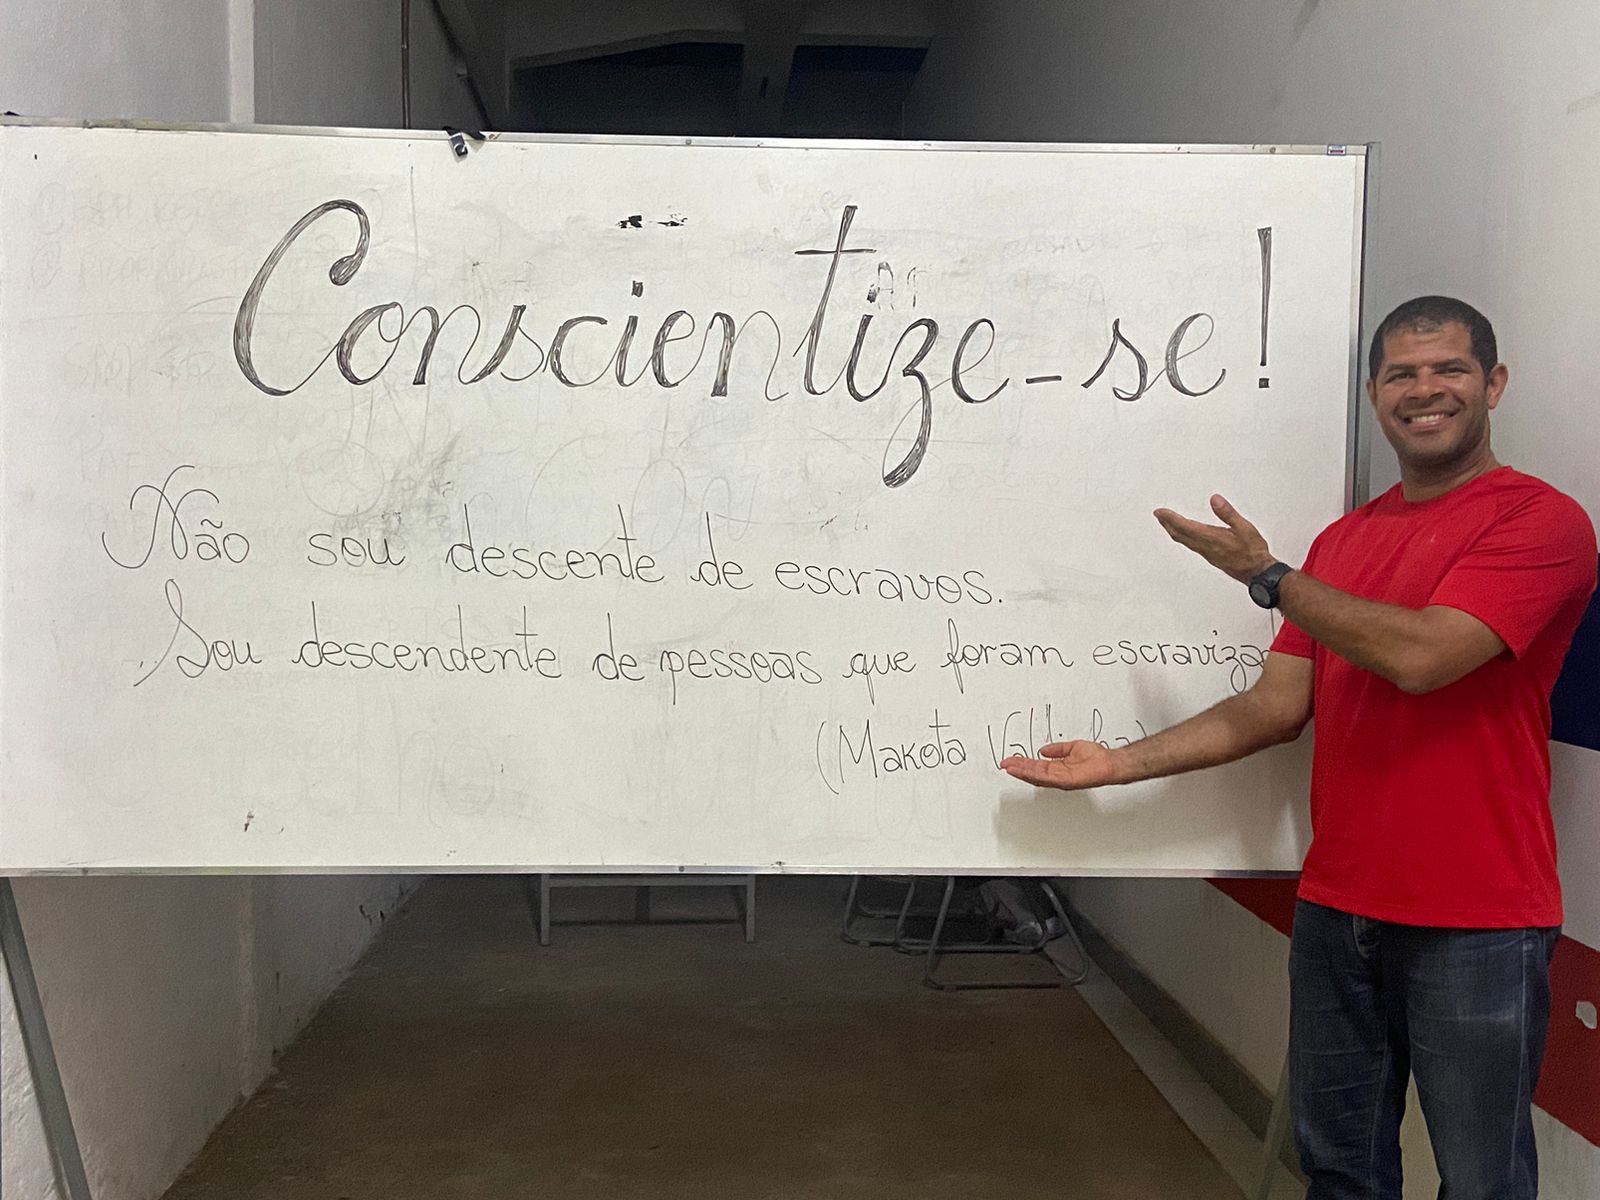 Conscientize-se!
Não sou descente de escravos.
Sou descendente de pessoas que foram
(Makota